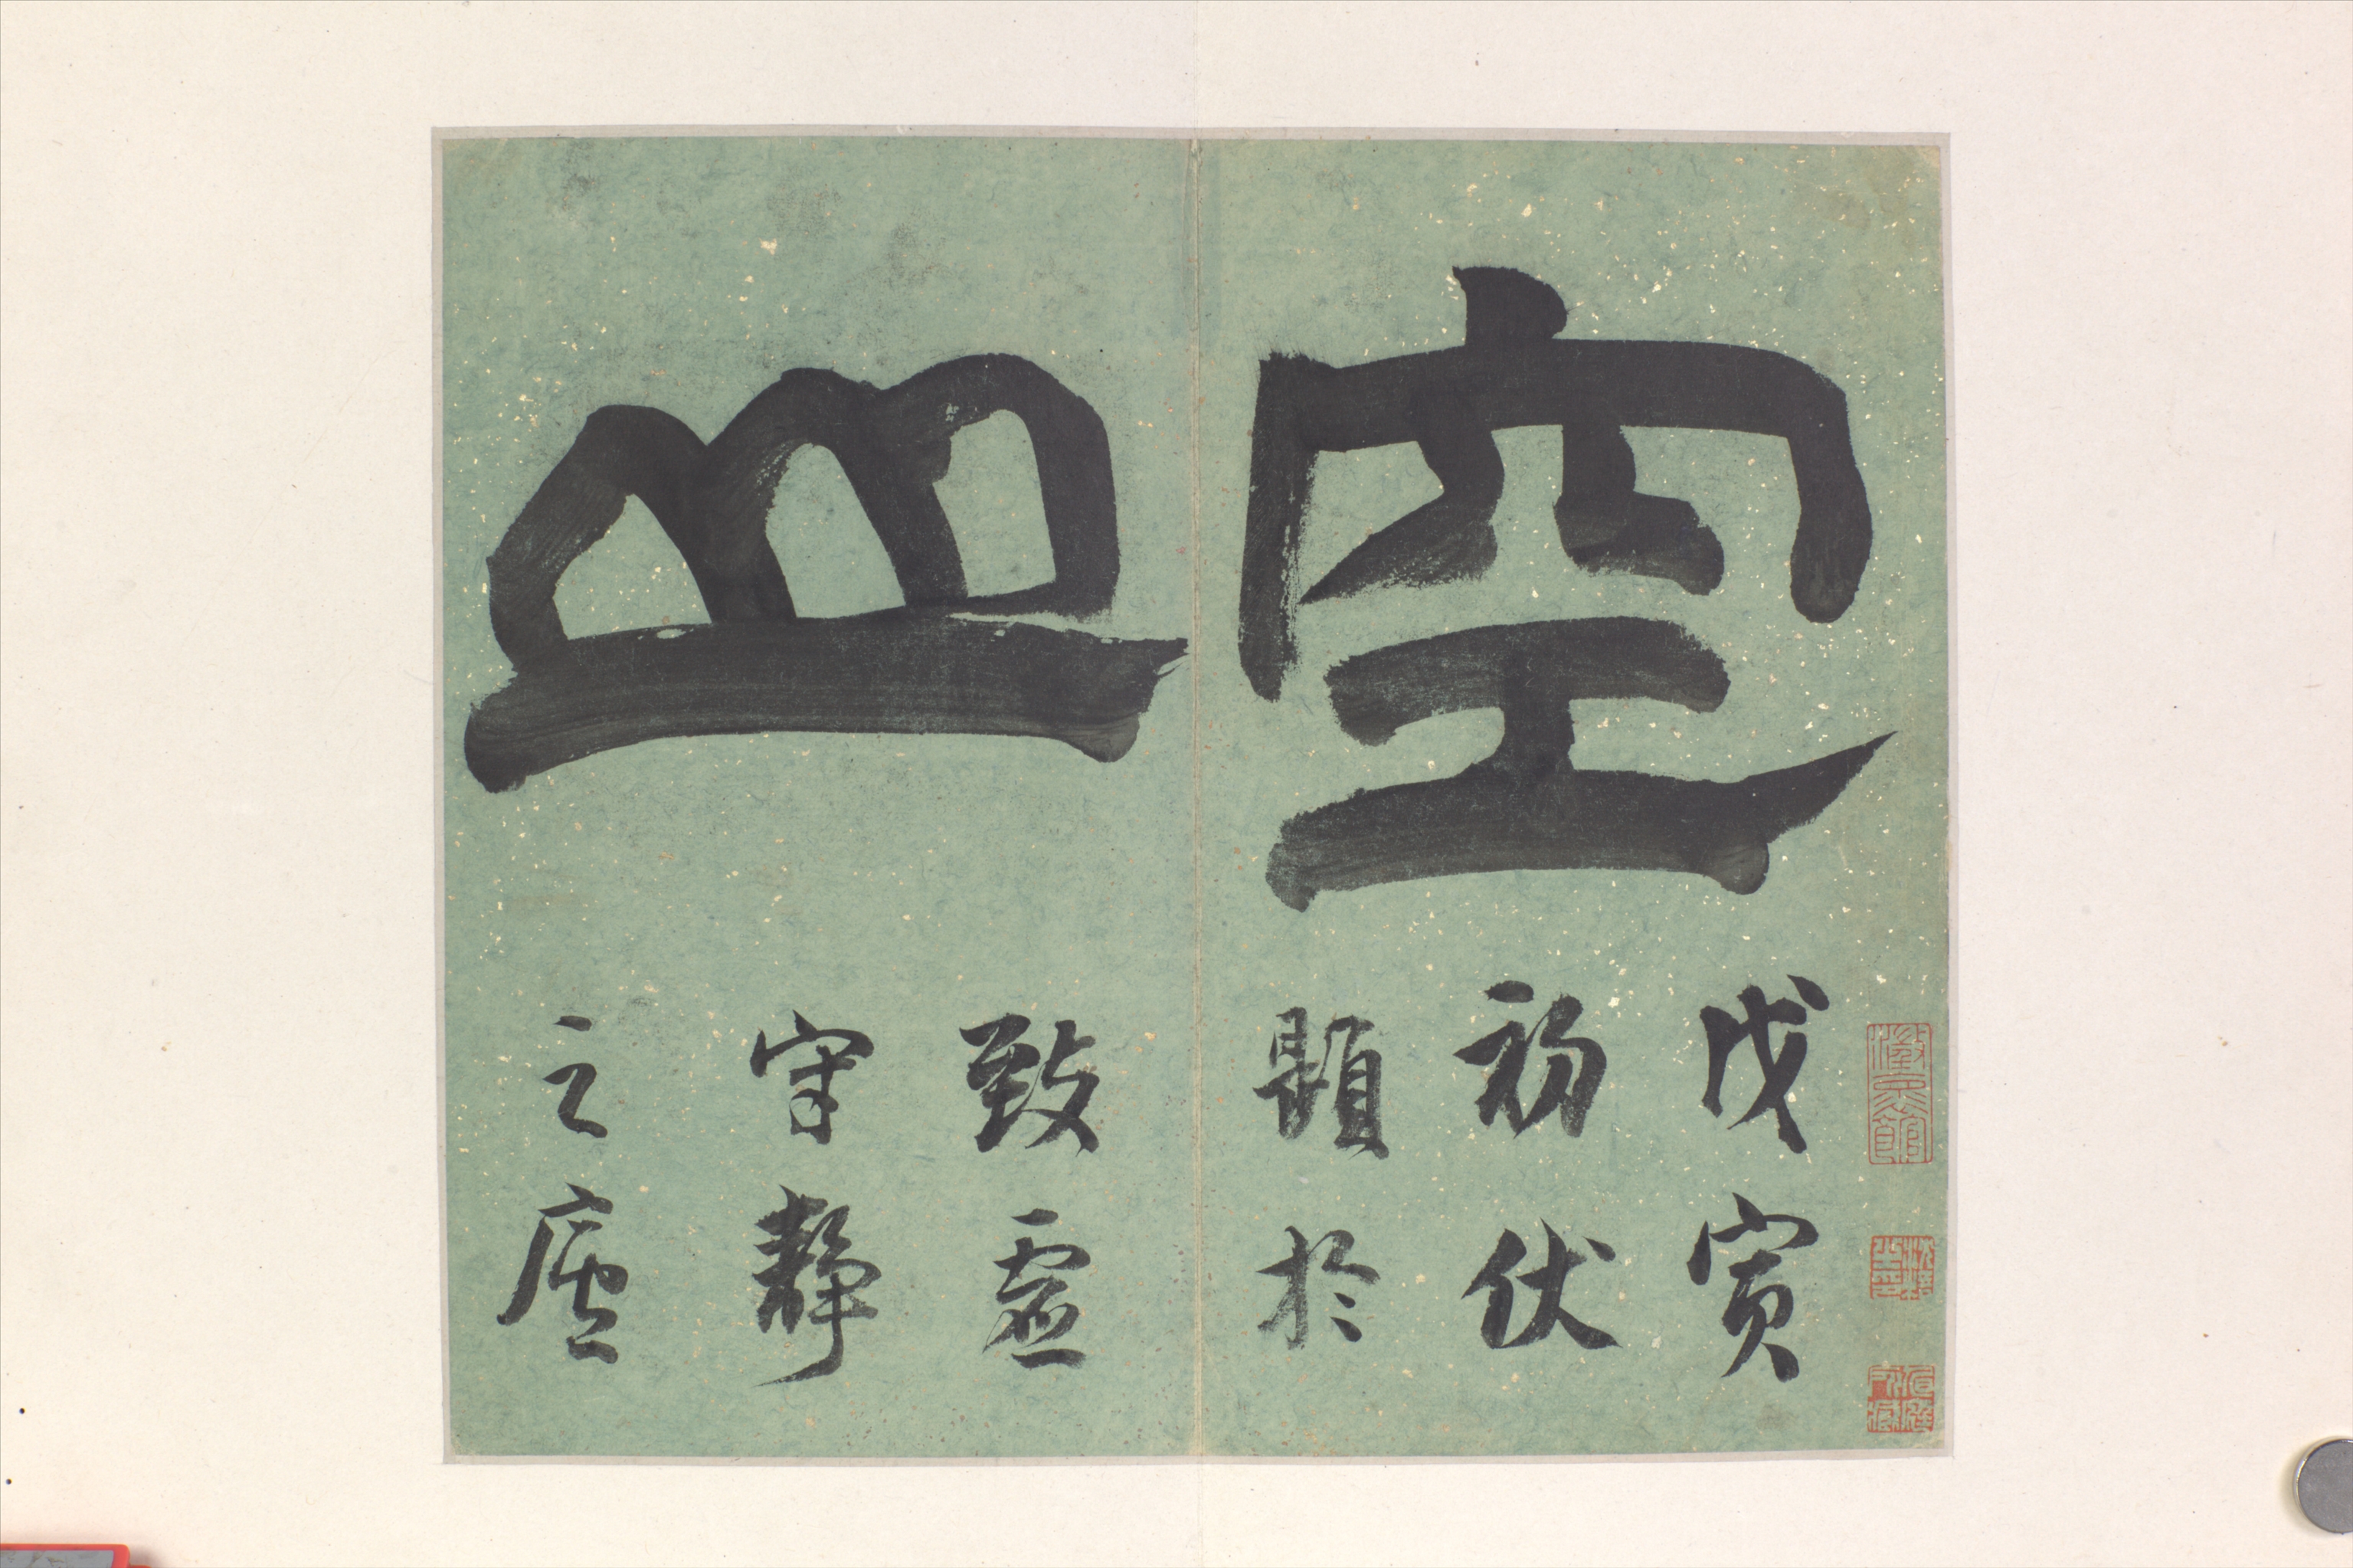 空山
戊寅
初伏
題於
致虛
守靜
之廬